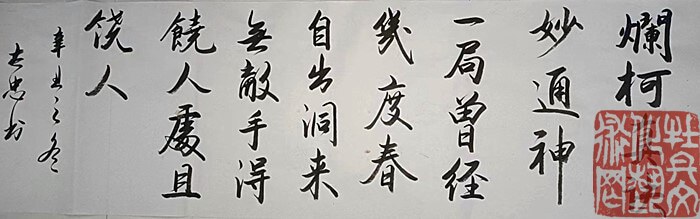 爛柯真訣
妙通神
一局曾经
幾度春
自出洞来
無敵手得
饒人處且
饶人
辛丑之冬
志忠书